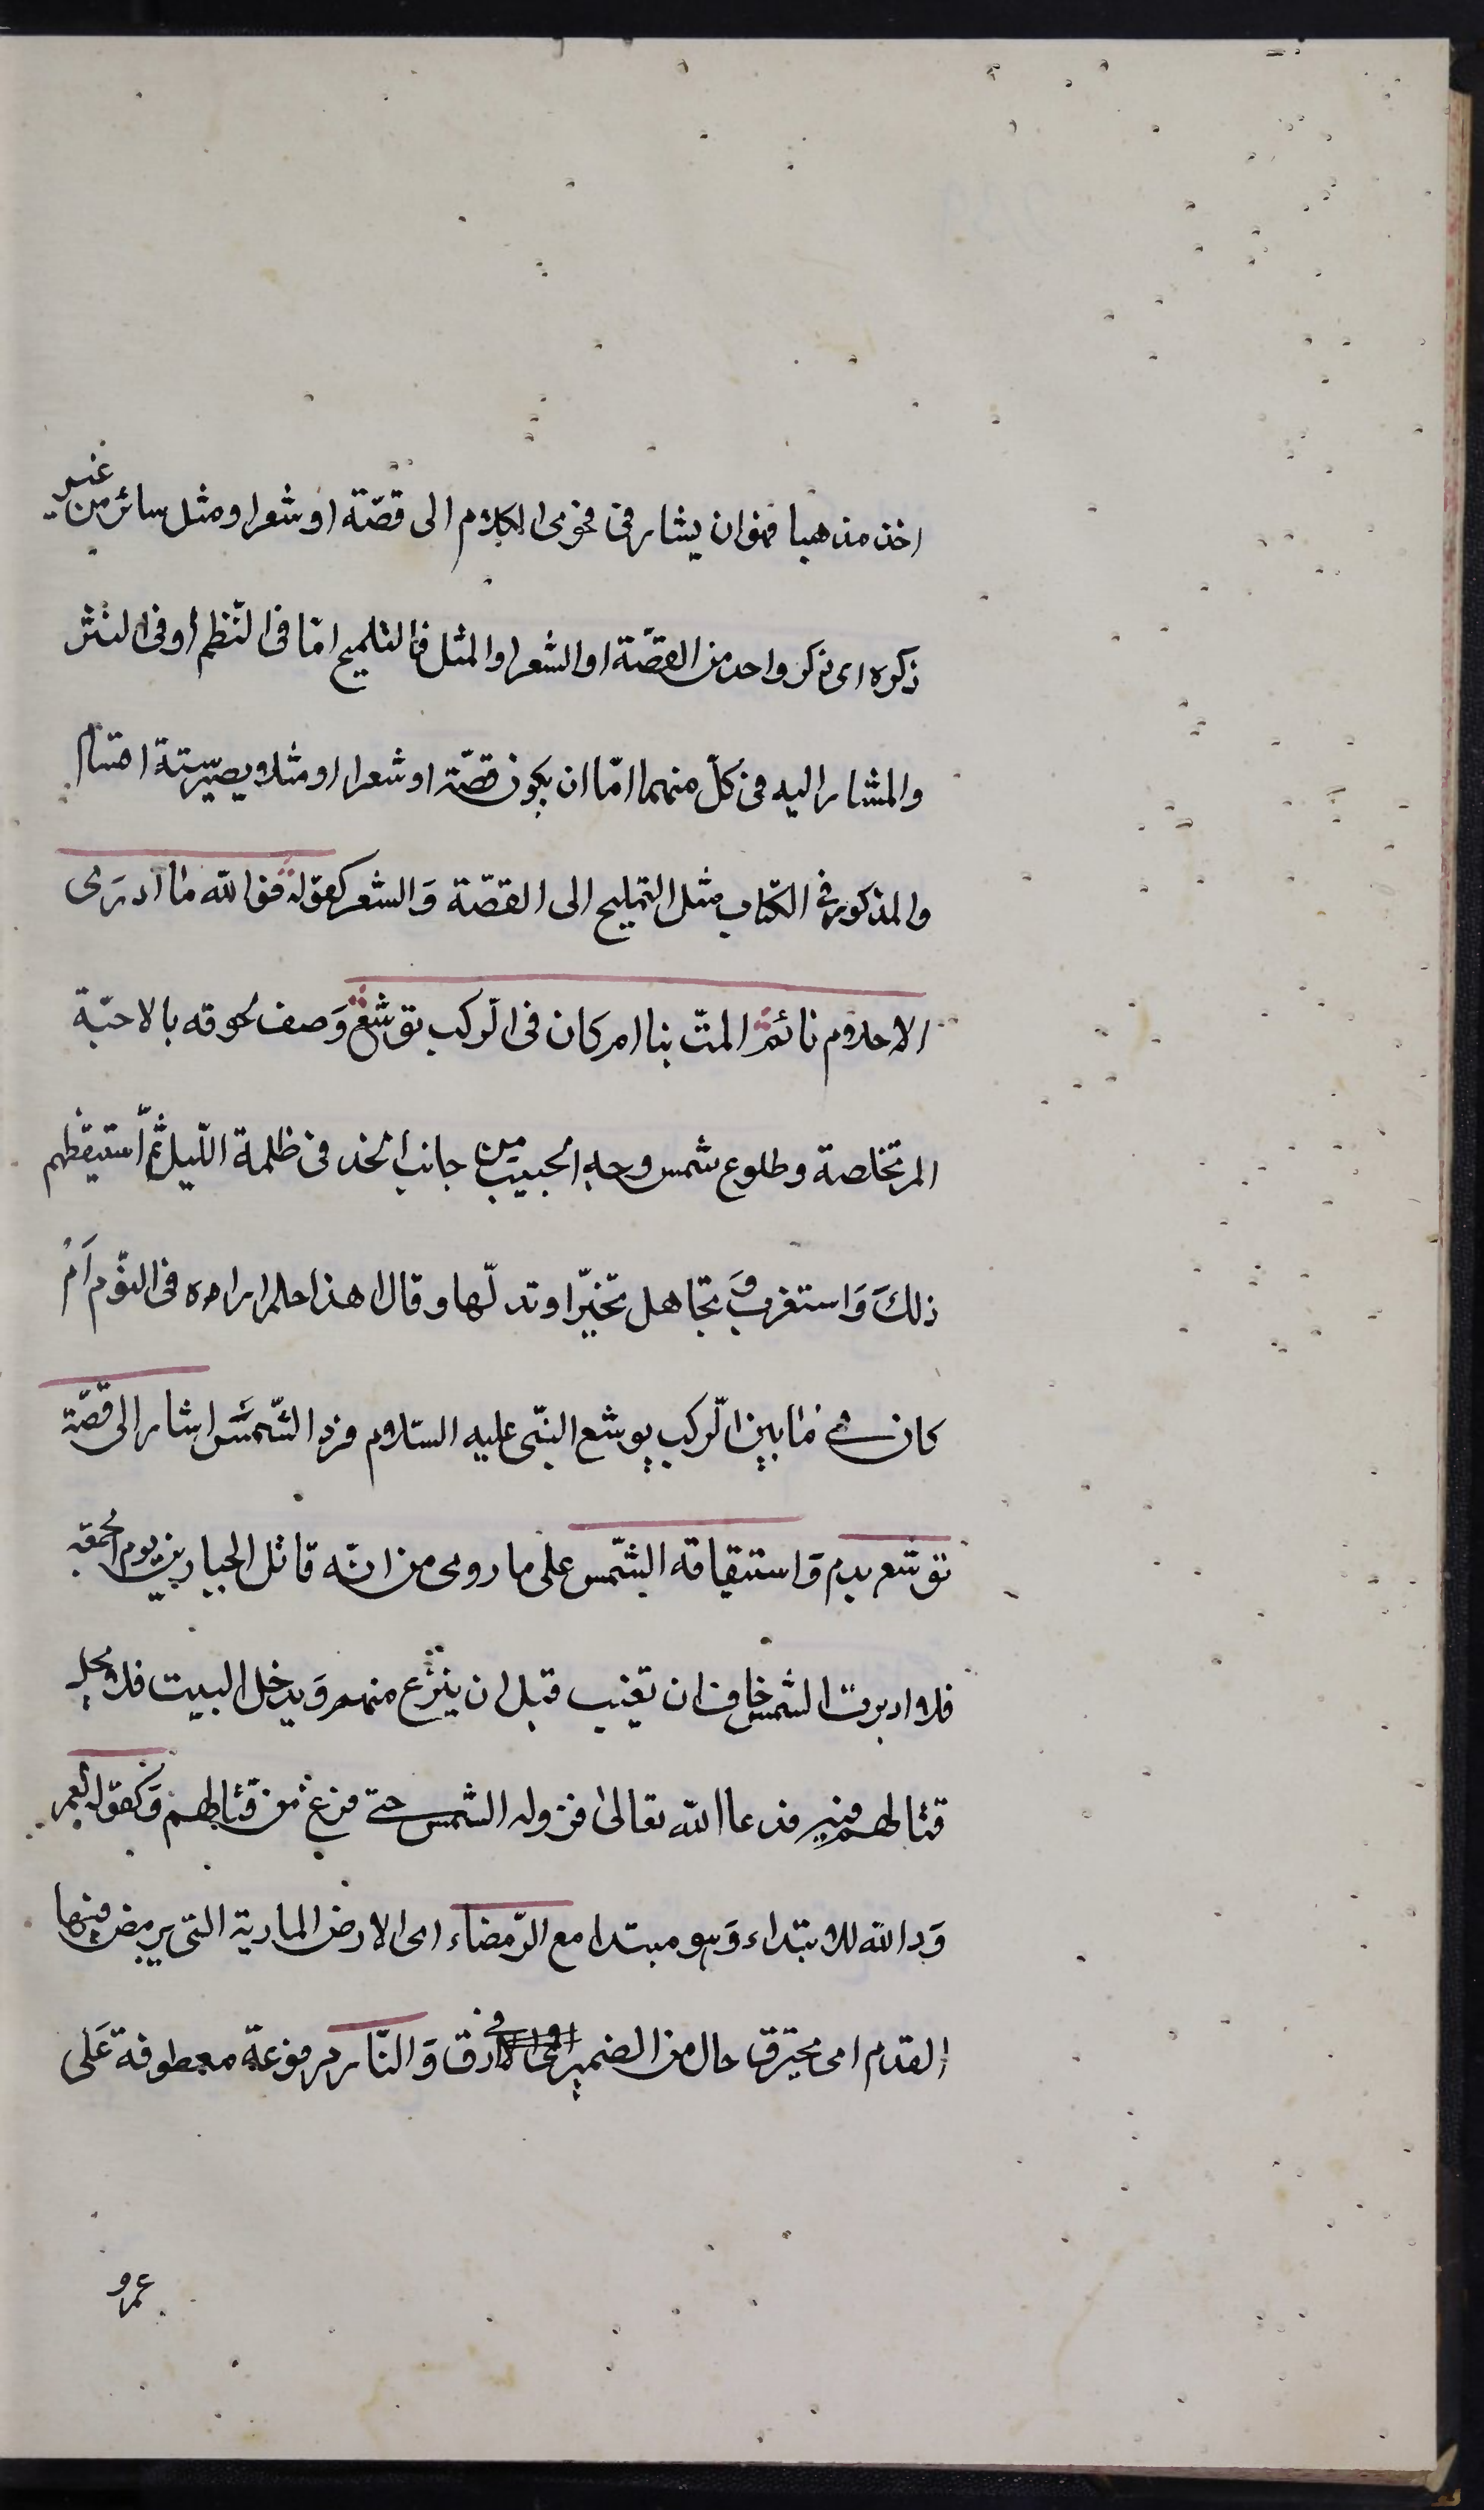 اخذ مذهبا فهو ان يشار فى فحوى الكلام الى قصّة او شعر او مثل سائر من غير
ذكره اى ذكر واحد من القصّة او الشعر او المثل فالتلميح امّا فى النّظم أو فى النثر
والمشار اليه فى كلّ منهما امّا ان يكون قصّة او شعرا او مثلا ويصير ستة اقسام
والمذكور فى الكتاب مثل التمليح الى القصّة وَالشعر كقوله فوالله ما ادرى
الاحلام نائم المت بنا ام كان فى الرّكب يوشع وَصف لحوقه بالاحبّة
المرتحلة وطلوع شمس وجه الحبيب من جانب الخدر فى ظلمة اللّيل ثمّ استعظم
ذلكَ وَاستغرب وَ تجاهل تحيّرا وتدلّها وقال اهذا حلم اراه فى النّوم اَمْ
كان فى ما بين الرّكب يوشع النبّى عليه السّلام فرد الشّمسَ اشار الى قصّة
يوشع عم وَاستيقافه الشّمس على ما روى من انّه قاتل الجبارين يوم الجمعة
فلما ادبرت الشمس خاف ان تغيب قبل ان يفرغ منهم وَيدخل السبت فلا يحل
قتالهم فيه فدعا الله تعالىٰ فرد له الشمس حتى فرغ من قتالهم وَكقوله لعمر
وَ والله للابتداء وَهو مبتدا مع الرّمضاء اى الارض الحارية التى يرمض فيها
القدم اى يحترق حال من الضمير فى ارق وَالنّار مرفوعة معطوفة عَلى
عمرو